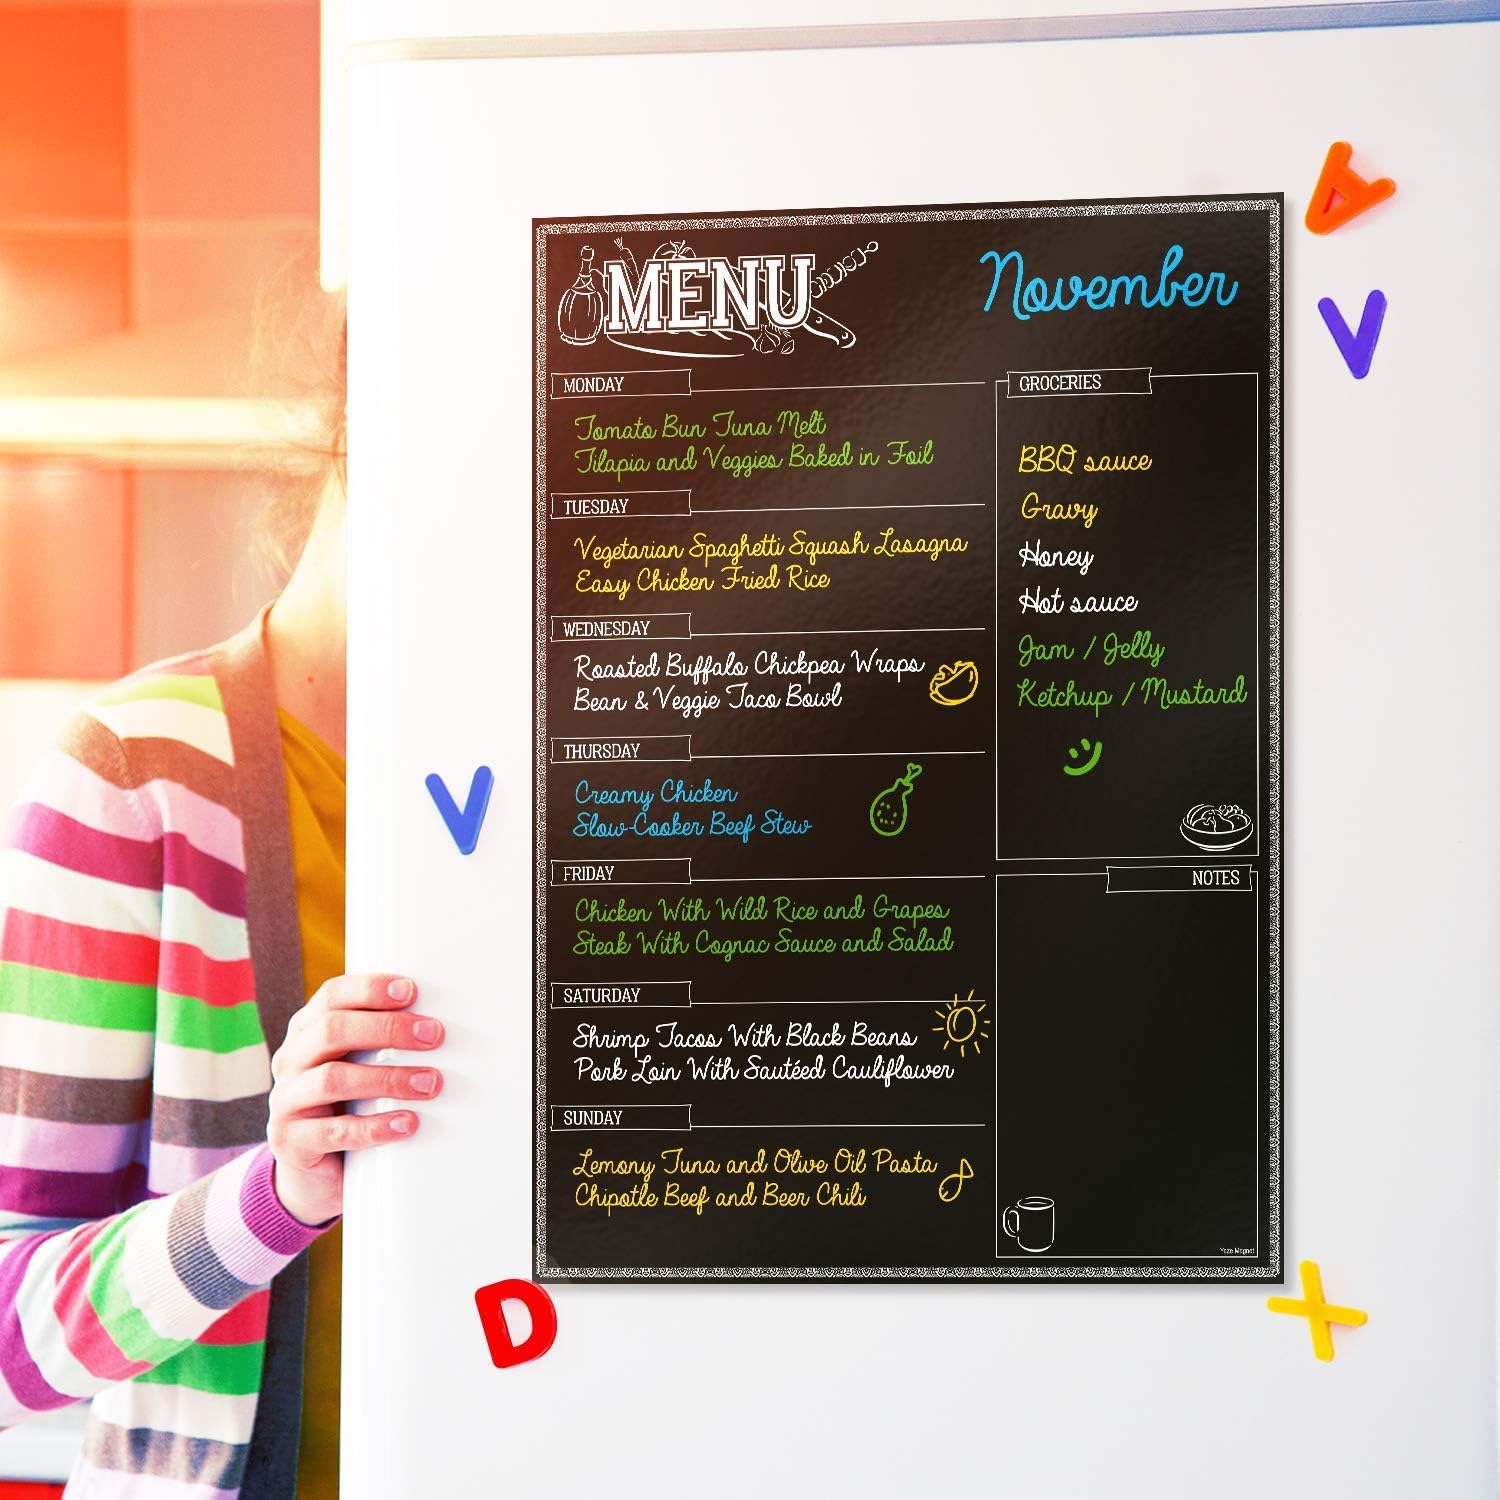 MENU
November
MONDAY
Tomato Bun Tuna Melt
Tilapia and Veggies Baked in Foil
TUESDAY
Vegetarian Spaghetti Squash Lasagna
Easy Chicken Fried Rice
WEDNESDAY
Roasted Buffalo Chickpea Wraps
Bean & Veggie Taco Bowl
THURSDAY
Creamy Chicken
Slow-Cooker Beef Stew
FRIDAY
Chicken With Wild Rice and Grapes
Steak With Cognac Sauce and Salad
SATURDAY
Shrimp Tacos With Black Beans
Pork Loin With Sautéed Cauliflower
SUNDAY
Lemony Tuna and Olive Oil Pasta
Chipotle Beef and Beer Chili
GROCERIES
BBQ sauce
Gravy
Honey
Hot sauce
Jam / Jelly
Ketchup / Mustard
NOTES
Yeze Magnet
A
V
V
D
X